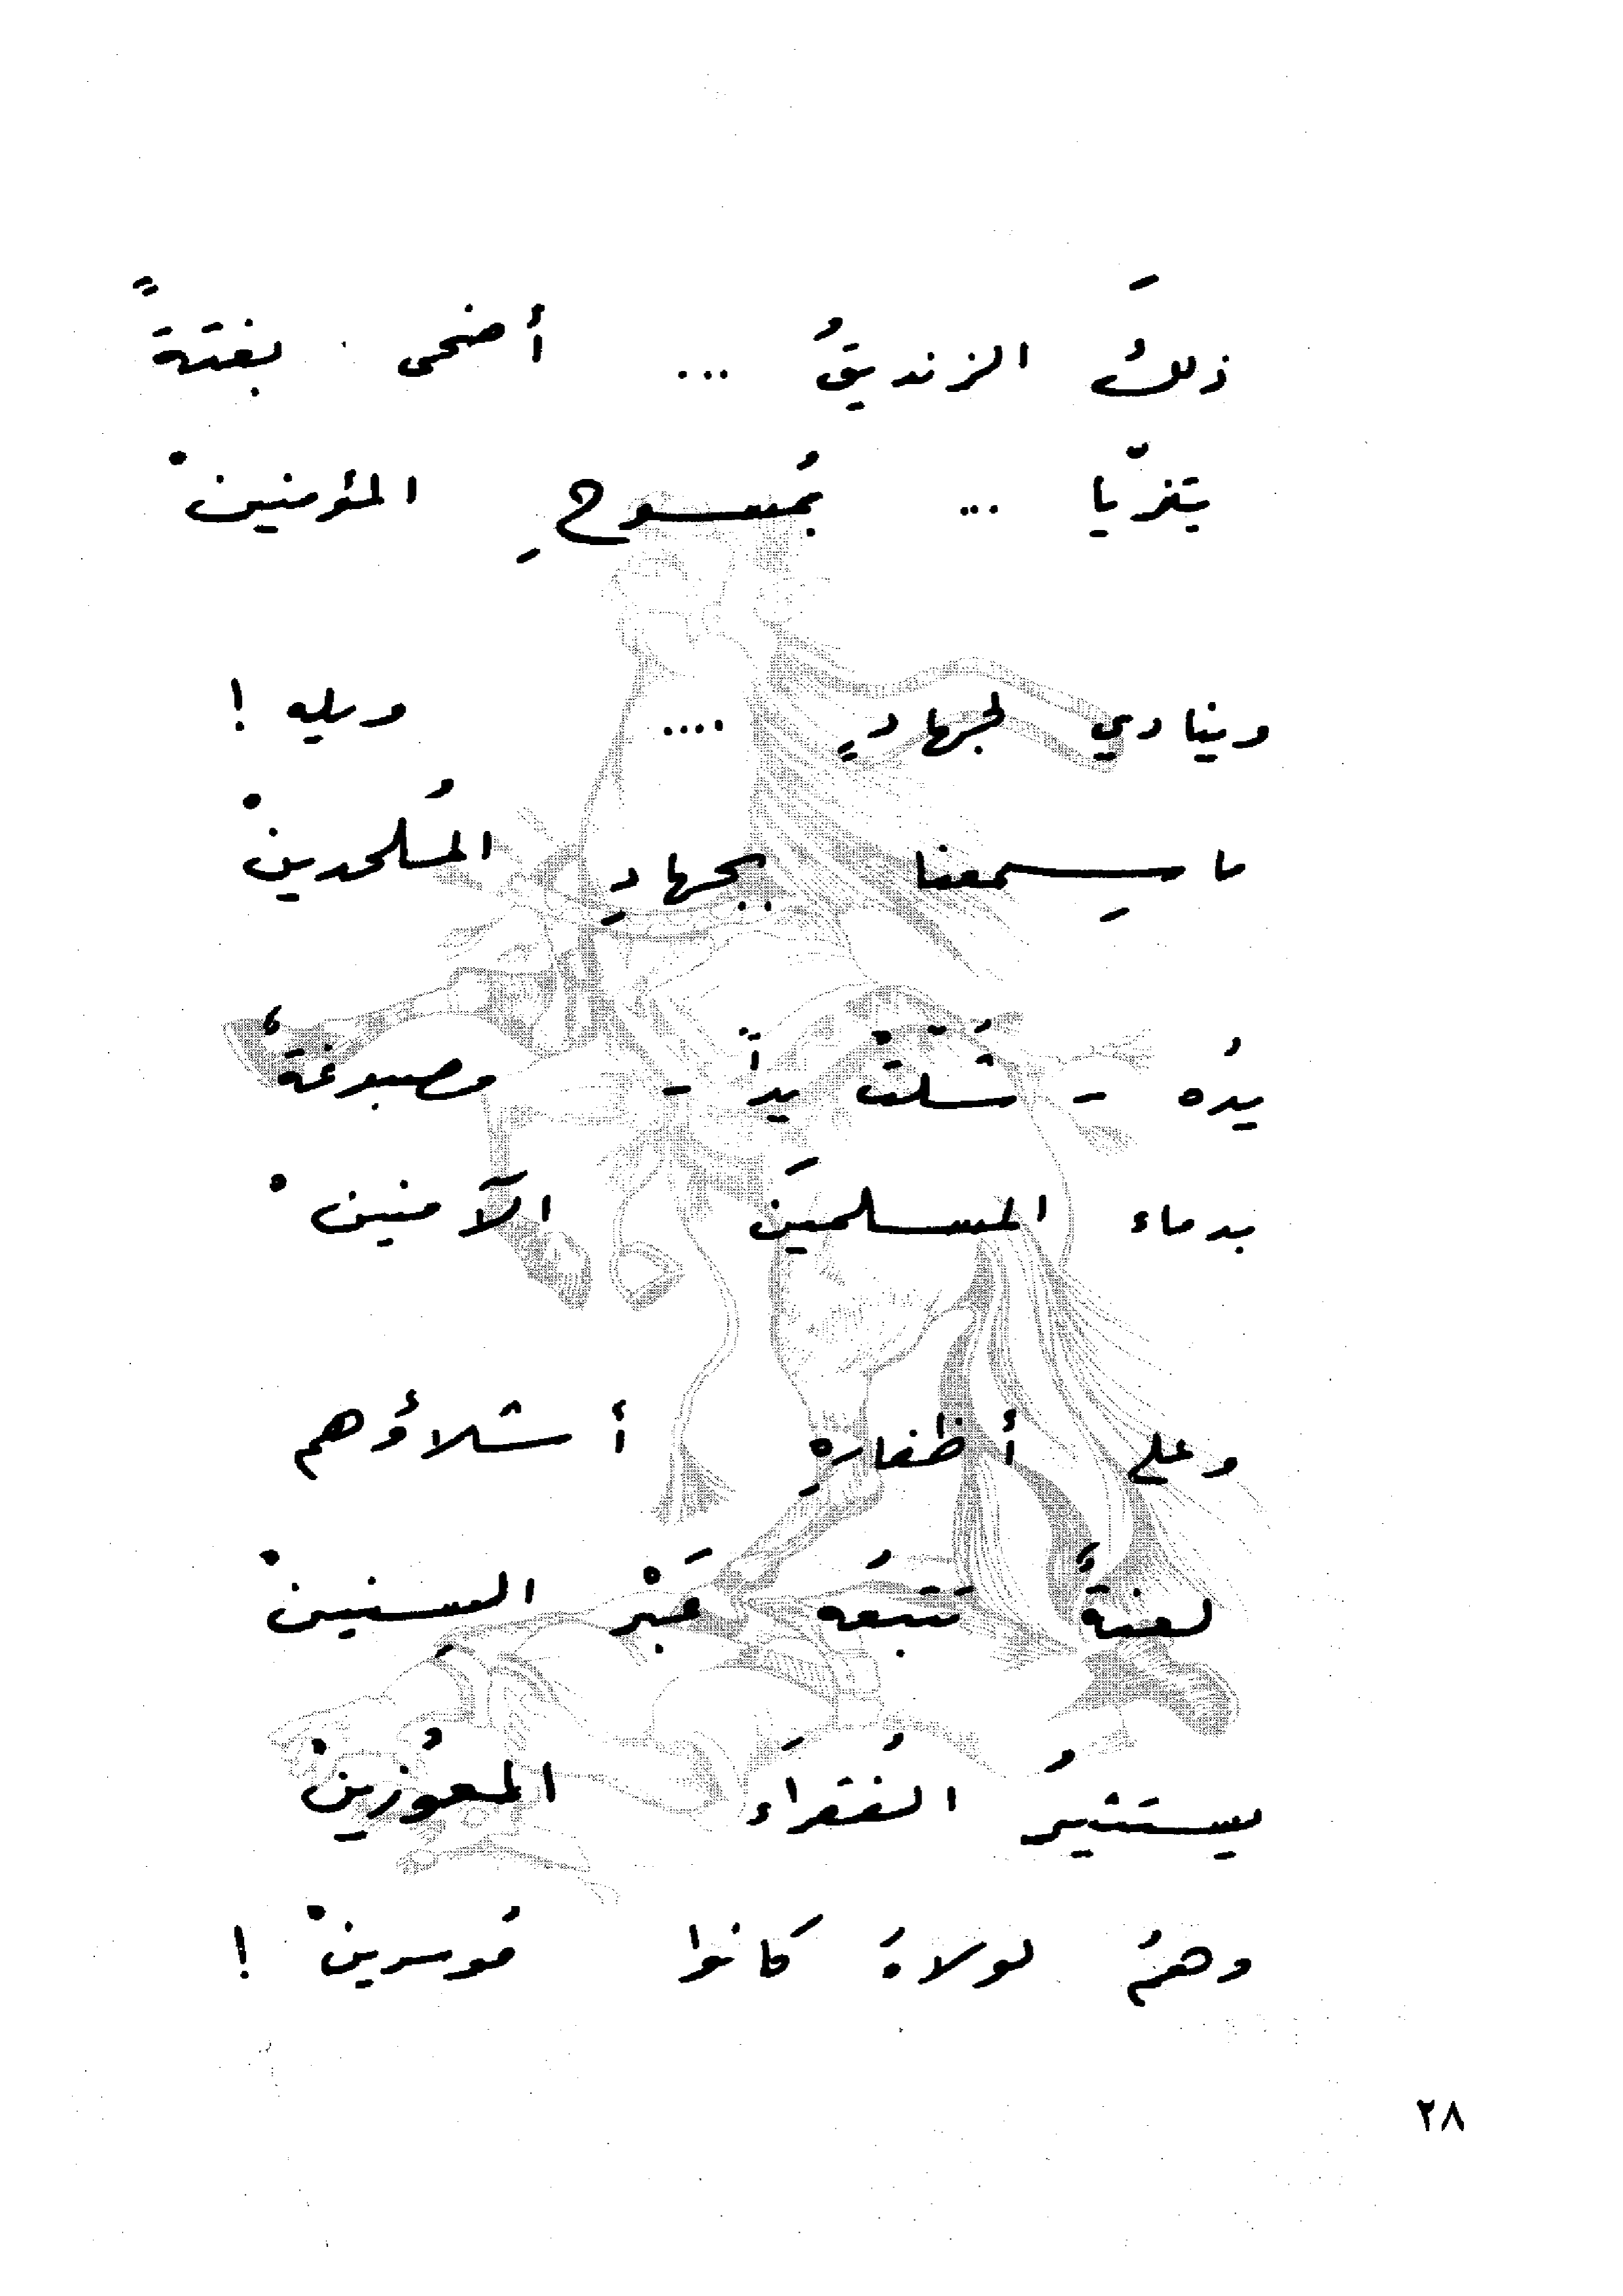 ذلكَ الزنديقُ ... أضحى بغتةً
يتزيّا ... بمُسوحِ المؤمنينْ
وينادي لجهادٍ .... ويله !
ما سمِعنا بجهادِ المُلحدينْ
يدُه - شُلتْ يداً - مصبوغةٌ
بدماء المسلمينَ الآمنينْ
وعلى أظفارِهِ أشلاؤُهم
لعنةٌ تتبعُه عَبْرَ السنينْ
يستثيرُ الفُقَراءَ المعوُزينْ
وهمُ لولاهُ كانوا مُوسرينْ !
٢٨